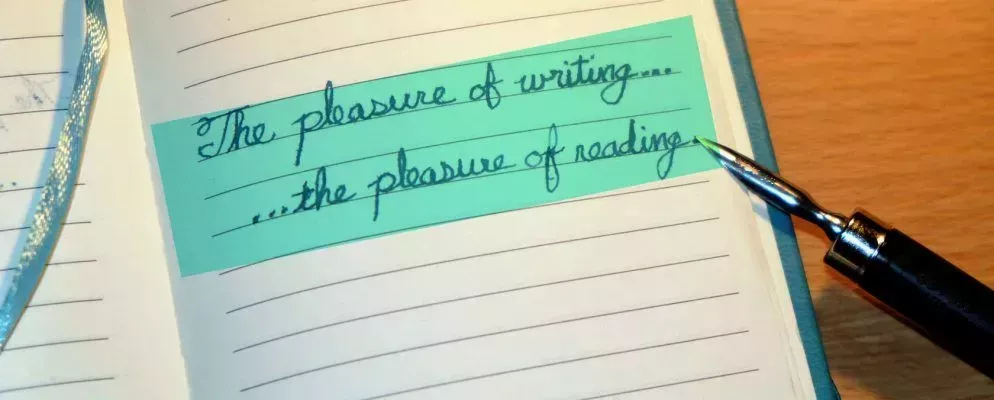 The pleasure of writing...
...the pleasure of reading.